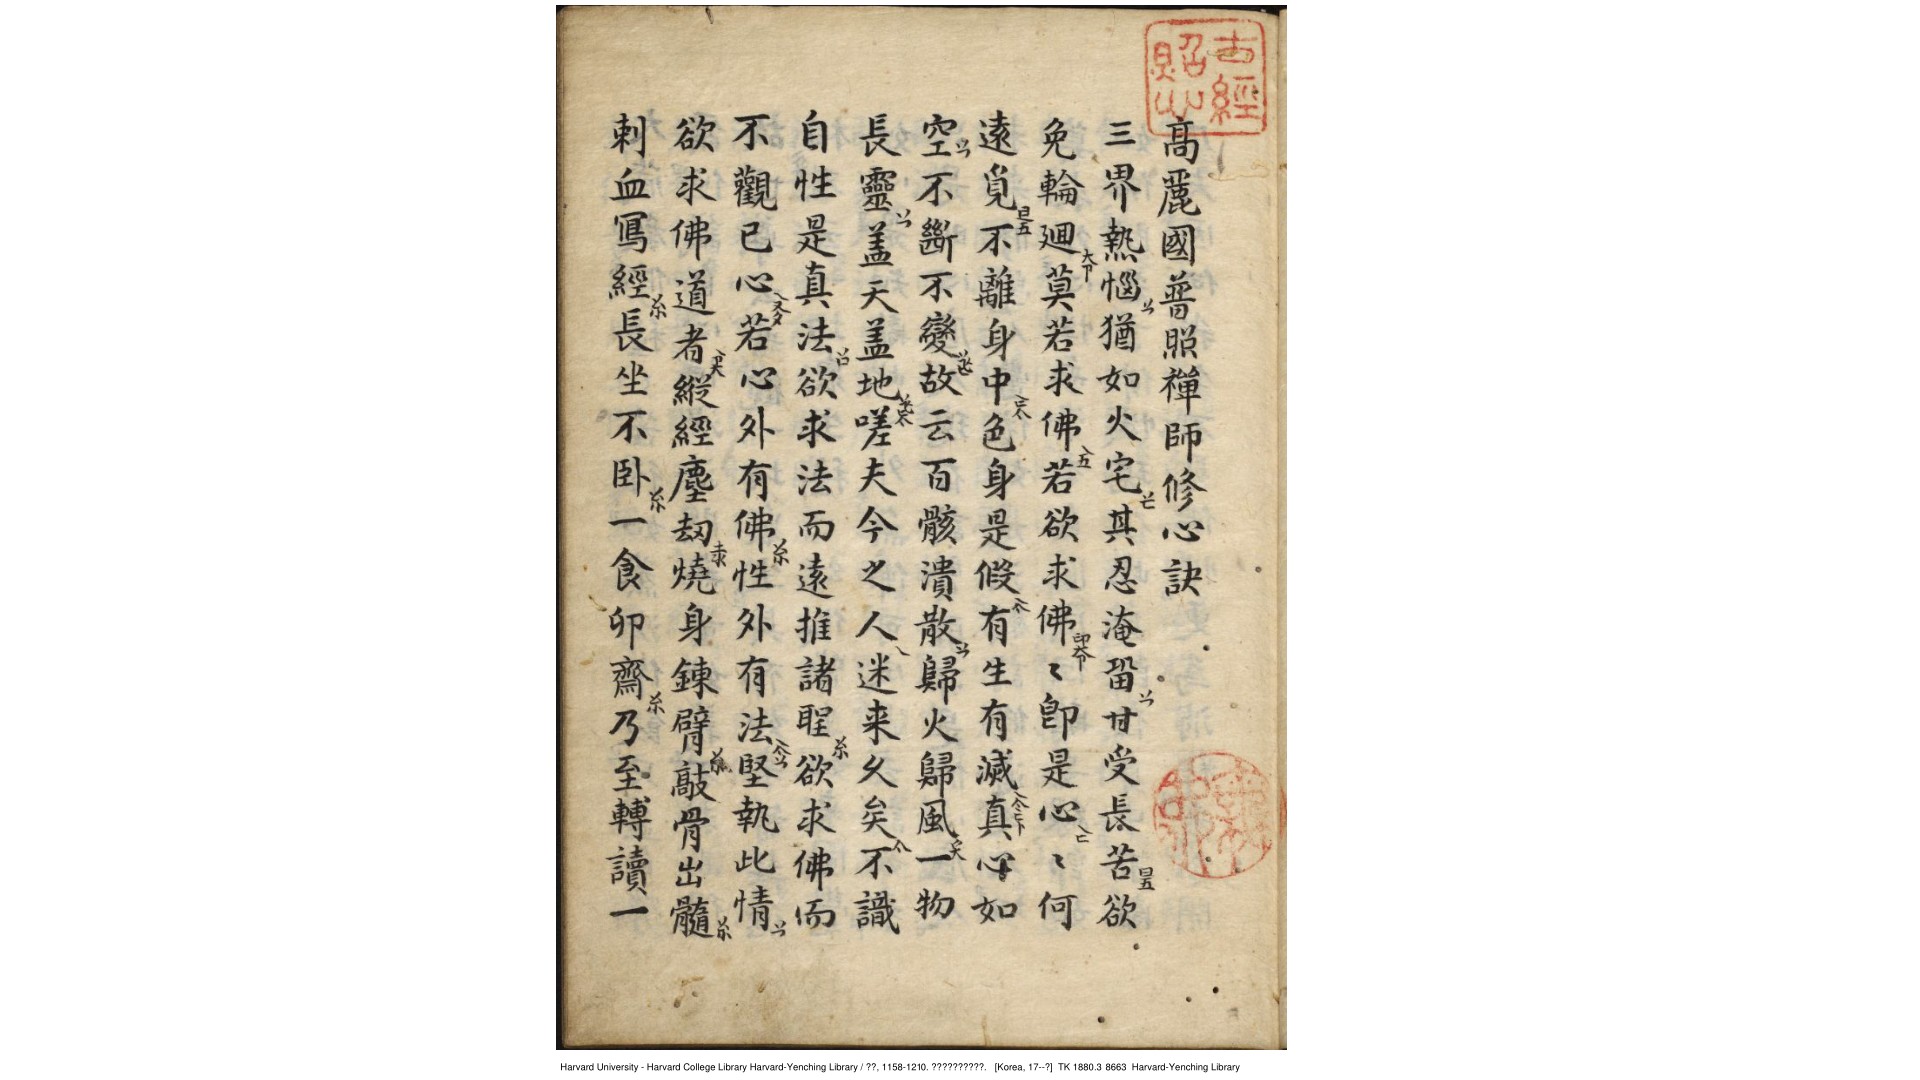 高麗國普照禪師修心訣
三界熱惱猶如火宅其忍淹留甘受長苦欲
免輪廻莫若求佛若欲求佛〻卽是心〻何
遠覓不離身中色身是假有生有滅真心如
空不斷不變故云百骸潰散歸火歸風一物
長靈盖天盖地嗟夫今之人迷来久矣不識
自性是真法欲求法而遠推諸聖欲求佛而
不觀已心若心外有佛性外有法堅執此情
欲求佛道者縱經塵劫燒身鍊臂敲骨出髓
刺血寫經長坐不卧一食卯齋乃至轉讀一
Harvard University - Harvard College Library Harvard-Yenching Library / ??, 1158-1210. ??????????. [Korea, 17--?] TK 1880.3 8663 Harvard-Yenching Library